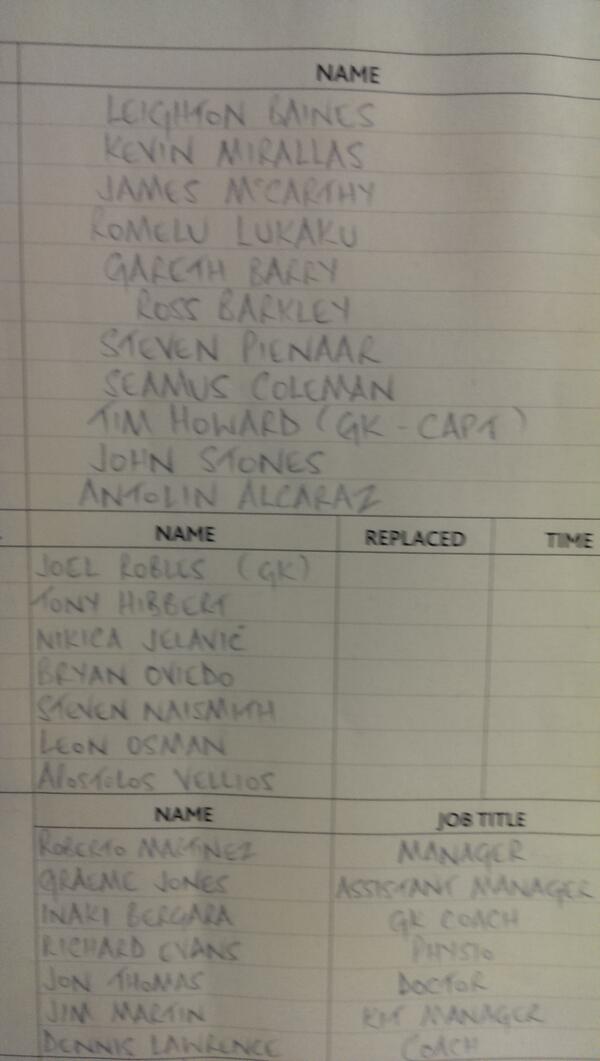 NAME
LEIGHTON BAINES
KEVIN MIRALLAS
JAMES McCARTHY
ROMELU LUKAKU
GARETH BARRY
ROSS BARKLEY
STEVEN PIENAAR
SEAMUS COLEMAN
TIM HOWARD (GK - CAPT)
JOHN STONES
ANTOLIN ALCARAZ
NAME REPLACED TIME
JOEL ROBLES (GK)
TONY HIBBERT
NIKICA JELAVIĆ
BRYAN OVIEDO
STEVEN NAISMITH
LEON OSMAN
APOSTOLOS VELLIOS
NAME JOB TITLE
ROBERTO MARTINEZ MANAGER
GRAEME JONES ASSISTANT MANAGER
INAKI BERGARA GK COACH
RICHARD EVANS PHYSIO
JON THOMAS DOCTOR
JIM MARTIN KIT MANAGER
DENNIS LAWRENCE COACH